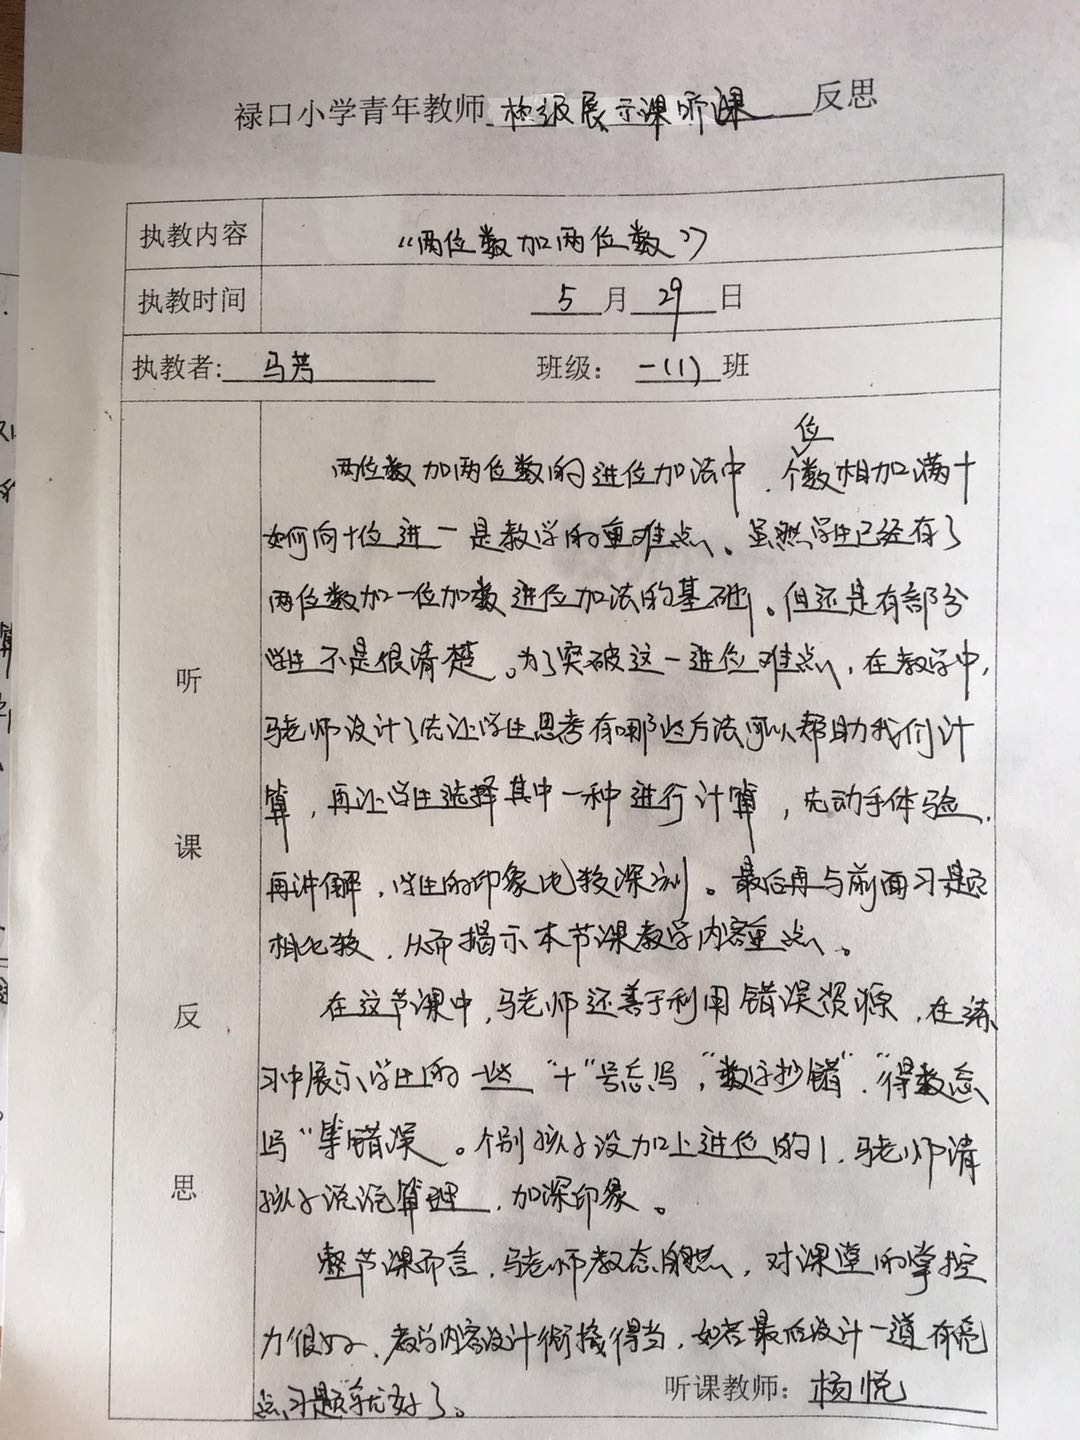 禄口小学青年教师 校级展示课听课 反思
执教内容 “两位数加两位数”
执教时间 5 月 29 日
执教者: 马芳 班级： 一(1) 班
听课反思
位
两位数加两位数的进位加法中，个数相加满十
如何向十位进一是教学的重难点、虽然学生已经有了
两位数加一位加数进位加法的基础。但还是有部分
学生不是很清楚。为了突破这一进位难点，在教学中，
马老师设计了法让学生思考有哪些方法可以帮助我们计
算，再让学生选择其中一种进行计算，先动手体验，
再讲解，学生的印象比较深刻。最后再与前面习题
相比较，从而揭示本节课教学内容重点。
在这节课中，马老师还善于利用错误资源，在练
习中展示学生的一些“+”号忘写，“数字抄错”，“得数忘
写”等错误。个别孩子没加上进位的1，马老师请
孩子说说算理，加深印象。
整节课而言，马老师教态自然，对课堂的掌控
力很好、教学内容设计衔接得当，如若最后设计一道有亮
点习题就好了。
听课教师： 杨悦